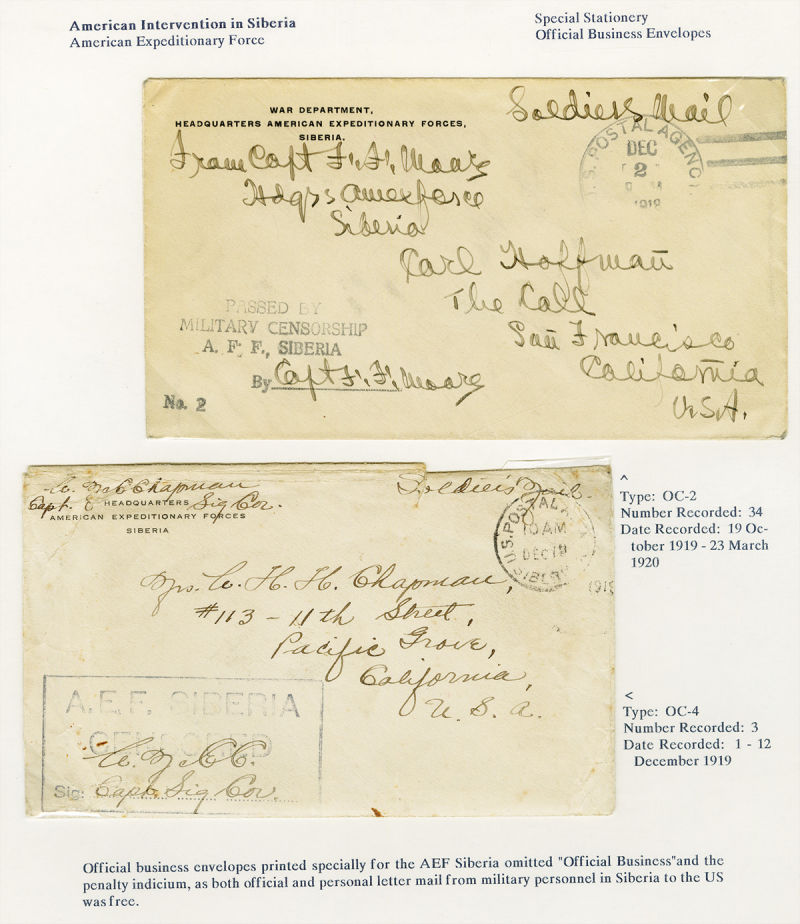 American Intervention in Siberia
American Expeditionary Force
Special Stationery
Official Business Envelopes
WAR DEPARTMENT,
HEADQUARTERS AMERICAN EXPEDITIONARY FORCES,
SIBERIA.
Soldiers Mail
U.S. POSTAL AGENC
DEC
2
1919
From Capt F. F. Moore
Hdqrs Amexforce
Siberia
Carl Hoffman
The Call
San Francisco
California
U.S.A.
PASSED BY
MILITARY CENSORSHIP
A. E. F., SIBERIA
By Capt F. F. Moore
No. 2
Capt. Sig Cor.
HEADQUARTERS
AMERICAN EXPEDITIONARY FORCES
SIBERIA
Soldier's Mail
U.S. POSTAL
10 AM
DEC 12
SIBER
1919
Mrs. W. H. H. Chapman,
#113 - 11th Street,
Pacific Grove,
California,
U. S. A.
A.E.F. SIBERIA
CENSORED
Sig: Capt. Sig Cor.
^
Type: OC-2
Number Recorded: 34
Date Recorded: 19 Oc-
tober 1919 - 23 March
1920
<
Type: OC-4
Number Recorded: 3
Date Recorded: 1 - 12
December 1919
Official business envelopes printed specially for the AEF Siberia omitted "Official Business"and the
penalty indicium, as both official and personal letter mail from military personnel in Siberia to the US
was free.